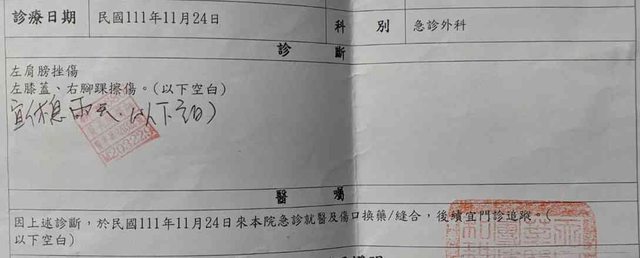 診療日期 民國111年11月24日 科別 急診外科
診斷
左肩膀挫傷
左膝蓋、右腳踝擦傷。(以下空白)
宜休息兩天.(以下空白)
醫囑
因上述診斷，於民國111年11月24日來本院急診就醫及傷口換藥/縫合，後續宜門診追蹤。(
以下空白)